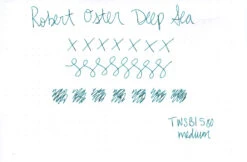 Robert Oster Deep Sea
x x x x x x x
TWSBI 580
medium